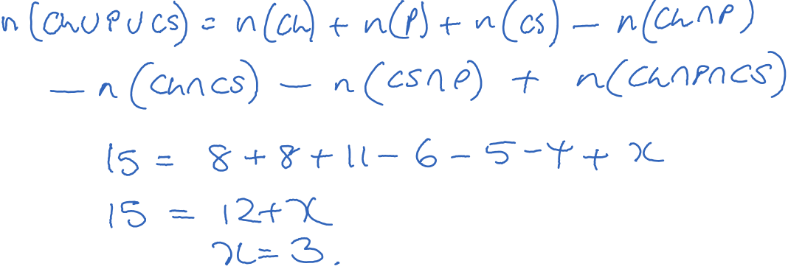 n(Ch∪P∪CS) = n(Ch) + n(P) + n(CS) − n(Ch∩P)
− n(Ch∩CS) − n(CS∩P) + n(Ch∩P∩CS)
15 = 8 + 8 + 11 − 6 − 5 − 4 + x
15 = 12 + x
x = 3.